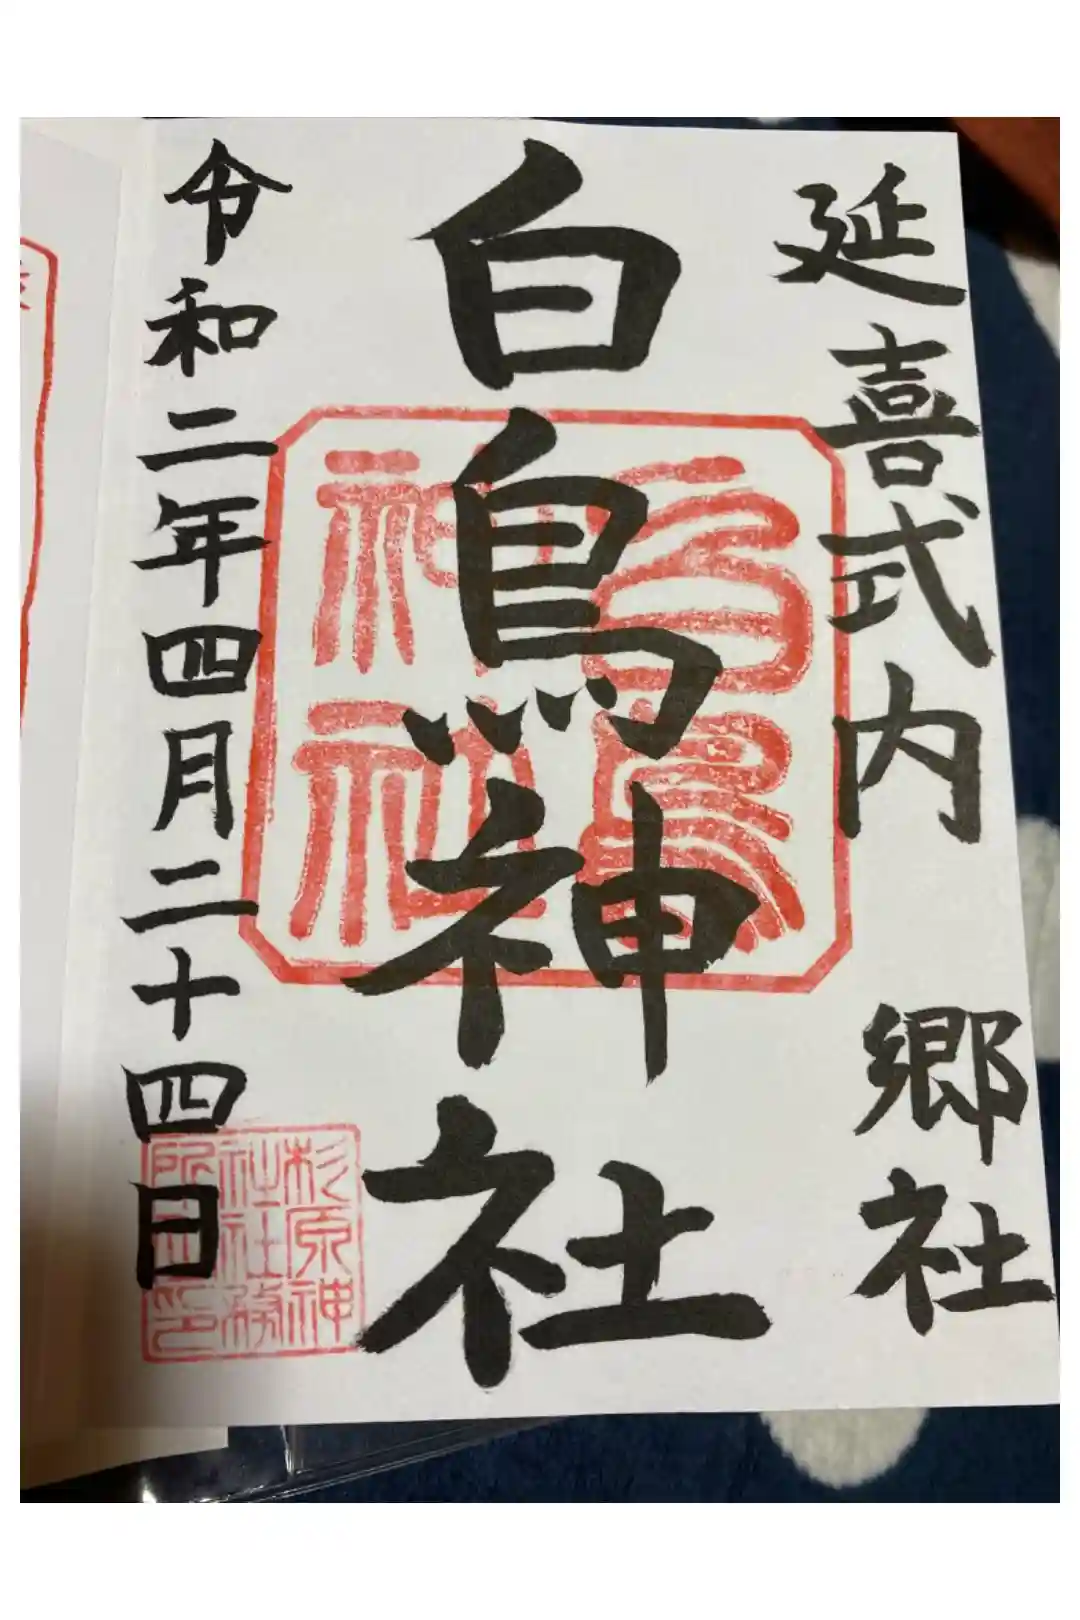 延喜式内 郷社
白鳥神社
令和二年四月二十四日
白鳥
神社
杉原神
社社務
所之印